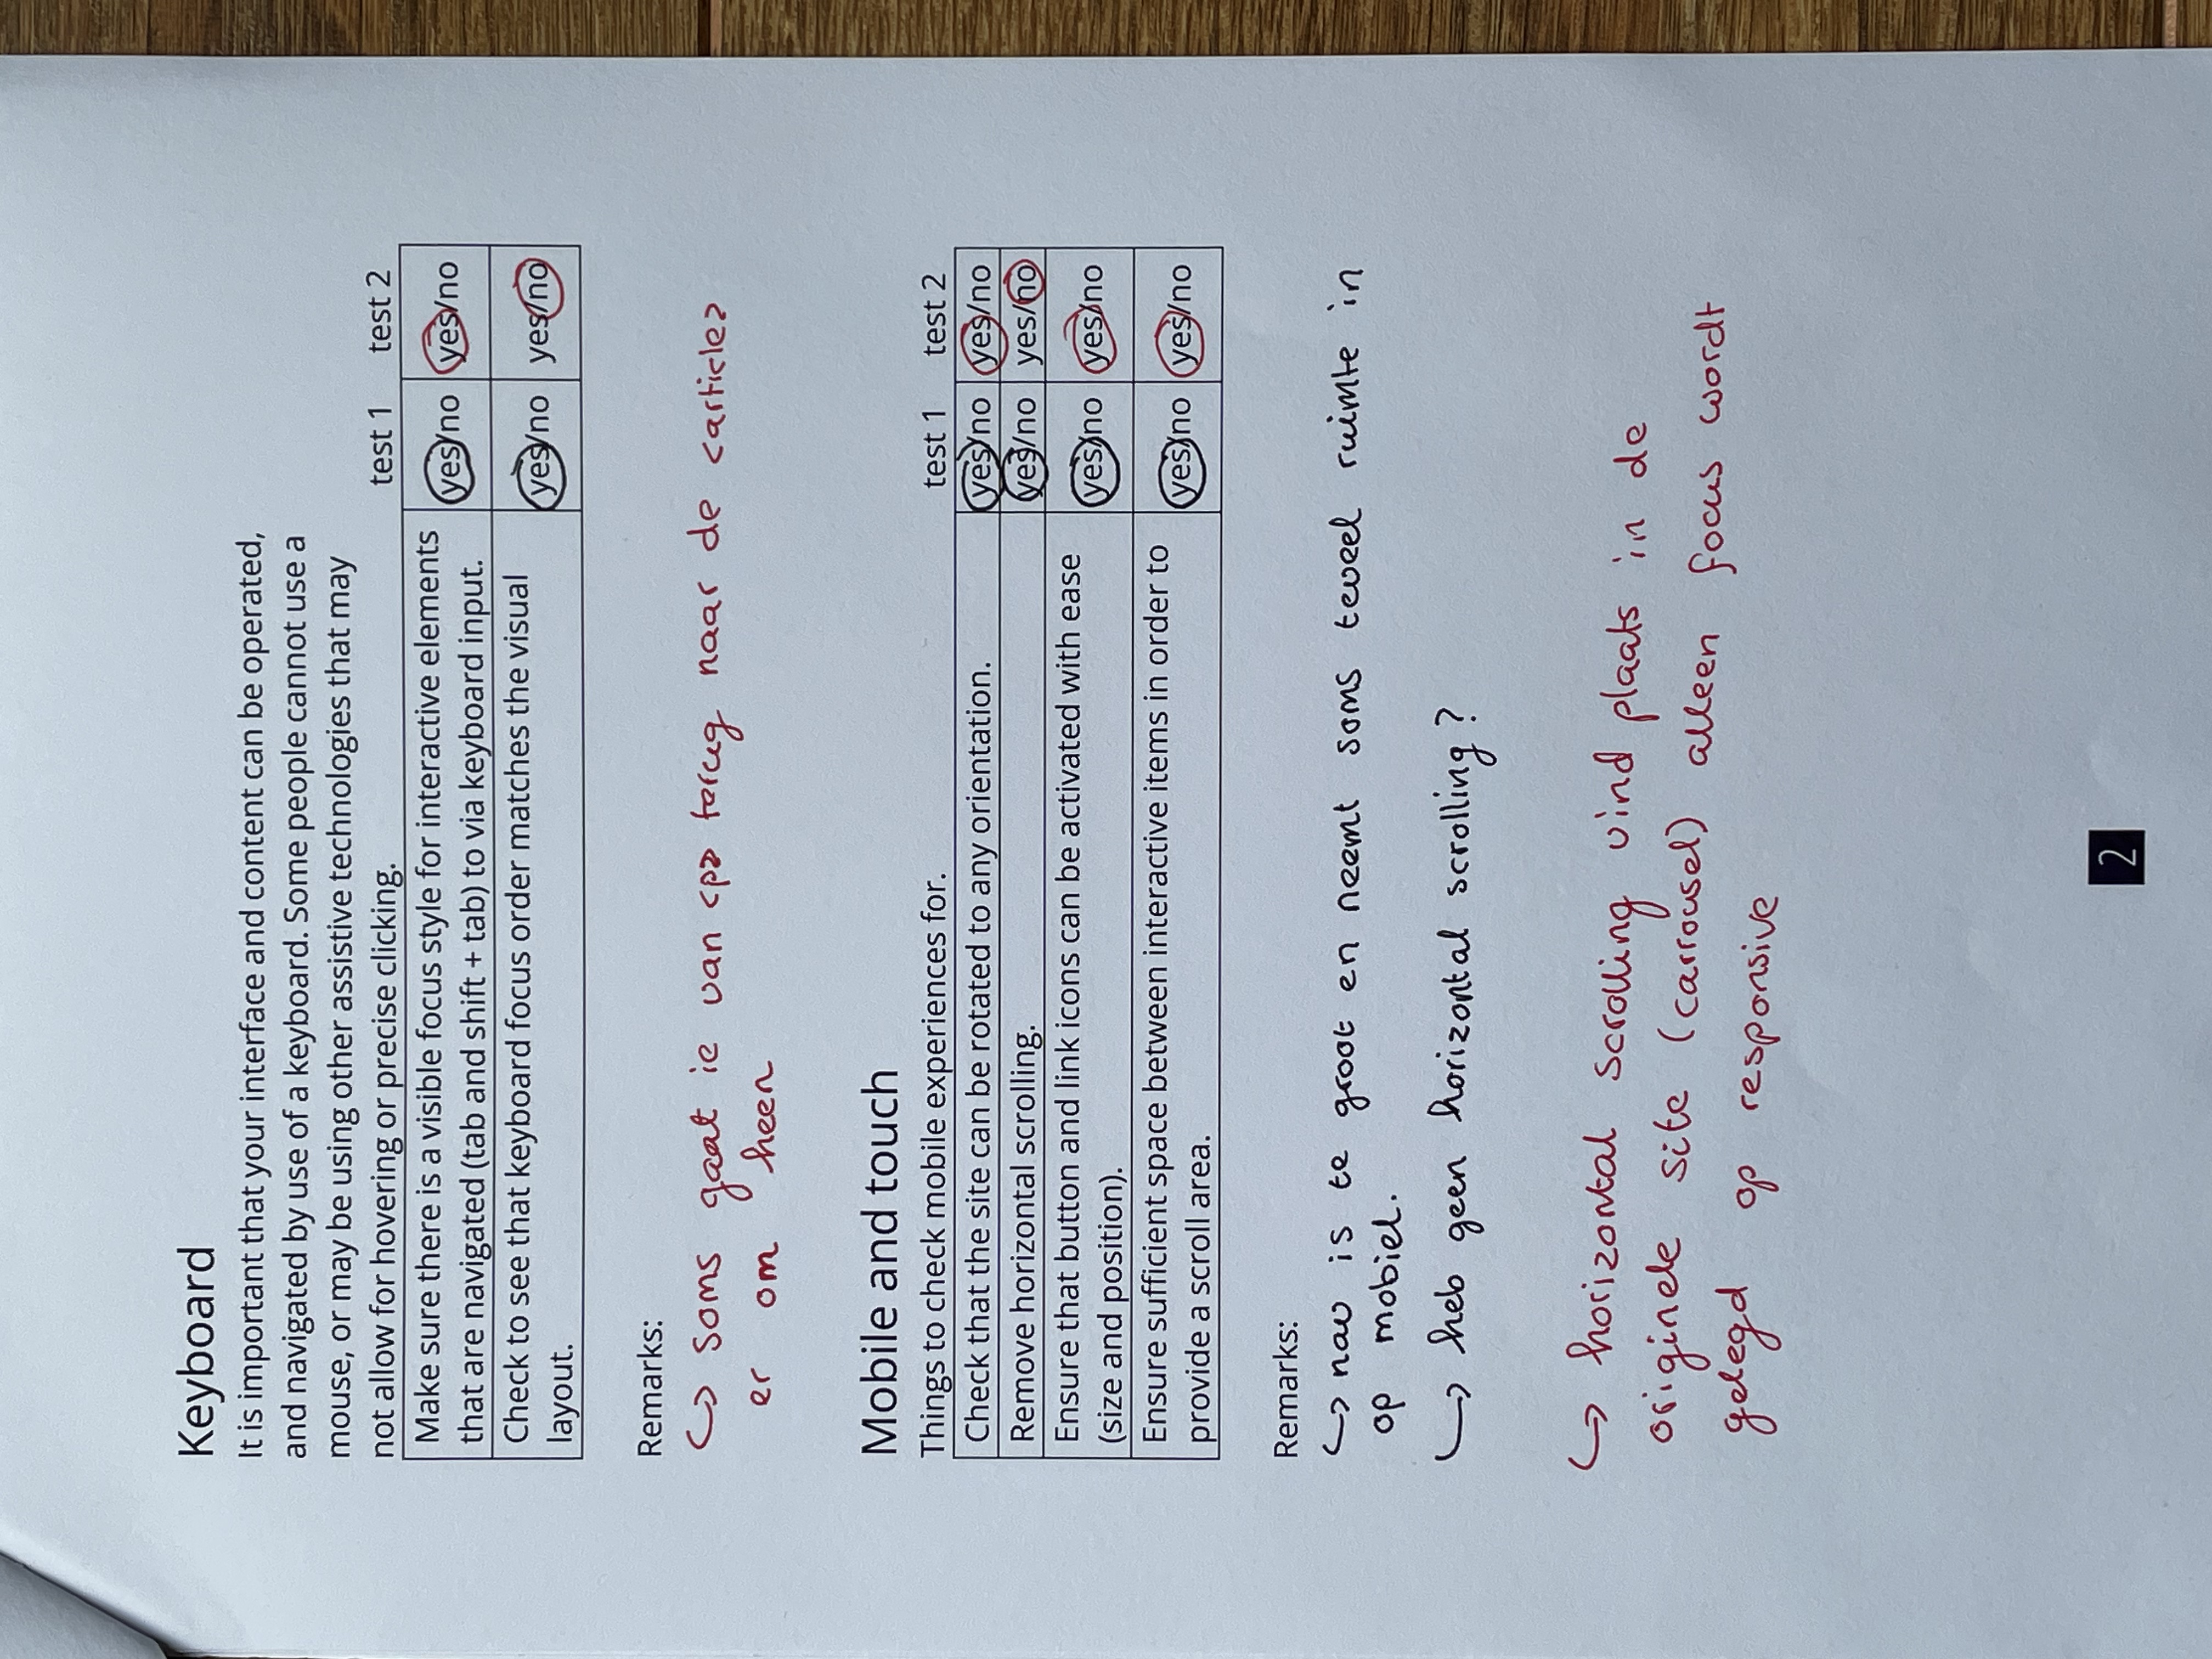 Keyboard
It is important that your interface and content can be operated,
and navigated by use of a keyboard. Some people cannot use a
mouse, or may be using other assistive technologies that may
not allow for hovering or precise clicking. test 1 test 2
Make sure there is a visible focus style for interactive elements
that are navigated (tab and shift + tab) to via keyboard input. yes/no yes/no
Check to see that keyboard focus order matches the visual
layout. yes/no yes/no
Remarks:
↪ soms gaat ie van <p> terug naar de <article>
er om heen
Mobile and touch
Things to check mobile experiences for. test 1 test 2
Check that the site can be rotated to any orientation. yes/no yes/no
Remove horizontal scrolling. yes/no yes/no
Ensure that button and link icons can be activated with ease
(size and position). yes/no yes/no
Ensure sufficient space between interactive items in order to
provide a scroll area. yes/no yes/no
Remarks:
↪ nav is te groot en neemt soms teveel ruimte in
op mobiel.
↪ heb geen horizontal scrolling?
↪ horizontal scrolling vind plaats in de
originele site (carrousel) alleen focus wordt
gelegd op responsive
2